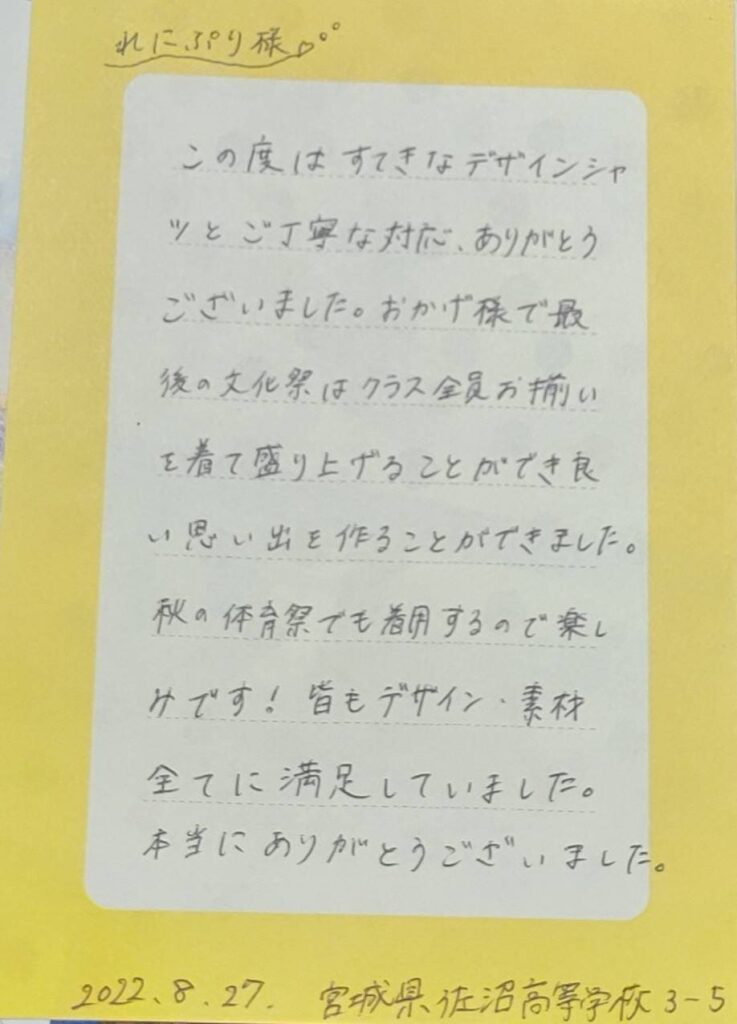 れにぷり様
この度はすてきなデザインシャ
ツとご丁寧な対応、ありがとう
ございました。おかげ様で最
後の文化祭はクラス全員お揃い
を着て盛り上げることができ良
い思い出を作ることができました。
秋の体育祭でも着用するので楽し
みです！皆もデザイン・素材
全てに満足していました。
本当にありがとうございました。
2022.8.27. 宮城県佐沼高等学校3-5